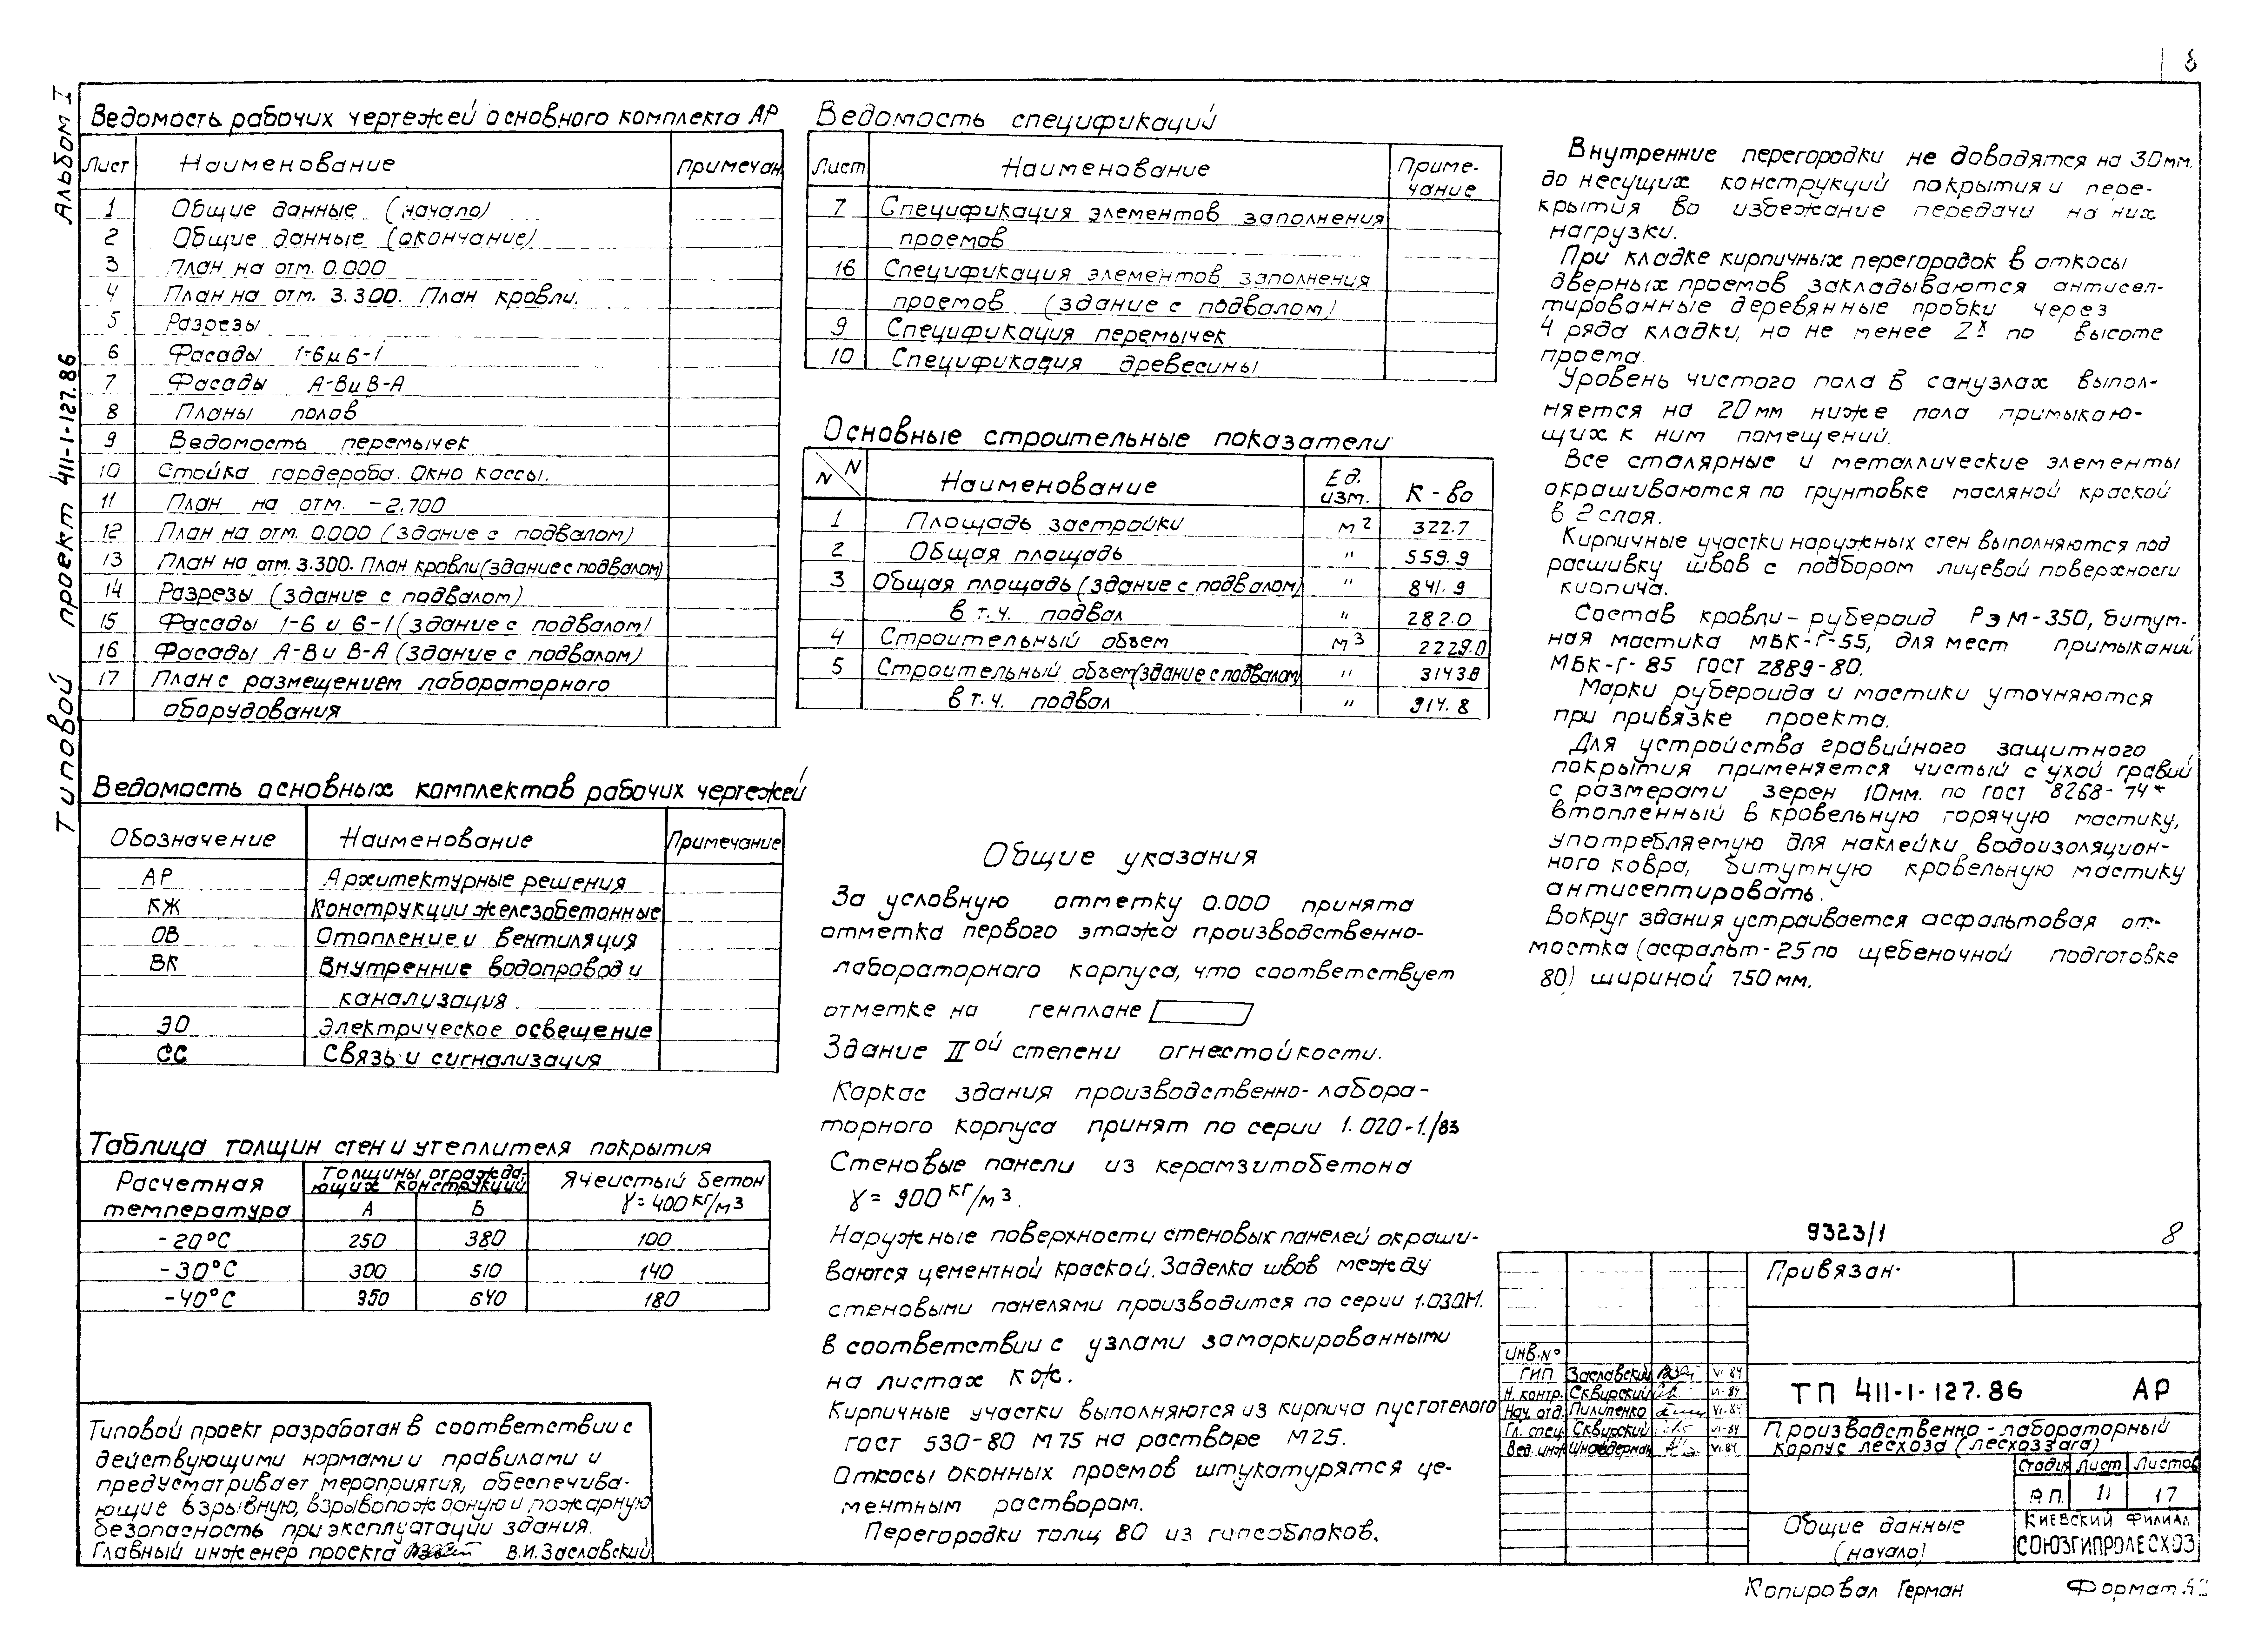 Альбом I
Типовой проект 411-1-127.86
Ведомость рабочих чертежей основного комплекта АР
Лист Наименование Примечан
1 Общие данные (начало)
2 Общие данные (окончание)
3 План на отм. 0.000
4 План на отм. 3.300. План кровли.
5 Разрезы
6 Фасады 1-6 и 6-1
7 Фасады А-В и В-А
8 Планы полов
9 Ведомость перемычек
10 Стойка гардероба. Окно кассы.
11 План на отм. -2.700
12 План на отм. 0.000 (здание с подвалом)
13 План на отм. 3.300. План кровли (здание с подвалом)
14 Разрезы (здание с подвалом)
15 Фасады 1-6 и 6-1 (здание с подвалом)
16 Фасады А-В и В-А (здание с подвалом)
17 План с размещением лабораторного
оборудования
Ведомость основных комплектов рабочих чертежей
Обозначение Наименование Примечание
АР Архитектурные решения
КЖ Конструкции железобетонные
ОВ Отопление и вентиляция
ВК Внутренние водопровод и
канализация
ЭО Электрическое освещение
СС Связь и сигнализация
Таблица толщин стен и утеплителя покрытия
Расчетная температура
Толщины огражда-
ющих конструкций
Ячеистый бетон
γ = 400 кг/м3
А Б
-20°С 250 380 100
-30°С 300 510 140
-40°С 350 640 180
Типовой проект разработан в соответствии с
действующими нормами и правилами и
предусматривает мероприятия, обеспечива-
ющие взрывную, взрывопожарную и пожарную
безопасность при эксплуатации здания.
Главный инженер проекта В.И.Заславский
Ведомость спецификаций
Лист Наименование Приме-
чание
7 Спецификация элементов заполнения
проемов
16 Спецификация элементов заполнения
проемов (здание с подвалом)
9 Спецификация перемычек
10 Спецификация древесины
Основные строительные показатели
N N Наименование Ед. изм. К-во
1 Площадь застройки м2 322.7
2 Общая площадь " 559.9
3 Общая площадь (здание с подвалом) " 841.9
в т.ч. подвал " 282.0
4 Строительный объем м3 2229.0
5 Строительный объем (здание с подвалом) " 3143.8
в т.ч. подвал " 914.8
Общие указания
За условную отметку 0.000 принята
отметка первого этажа производственно-
лабораторного корпуса, что соответствует
отметке на генплане
Здание IIой степени огнестойкости.
Каркас здания производственно-лабора-
торного корпуса принят по серии 1.020-1./83
Стеновые панели из керамзитобетона
γ = 900 кг/м3.
Наружные поверхности стеновых панелей окраши-
ваются цементной краской. Заделка швов между
стеновыми панелями производится по серии 1.030.1-1.
в соответствии с узлами замаркированными
на листах КЖ.
Кирпичные участки выполняются из кирпича пустотелого
ГОСТ 530-80 М75 на растворе М25.
Откосы оконных проемов штукатурятся це-
ментным раствором.
Перегородки толщ 80 из гипсоблоков.
Внутренние перегородки не доводятся на 30мм.
до несущих конструкций покрытия и пере-
крытия во избежание передачи на них
нагрузки.
При кладке кирпичных перегородок в откосы
дверных проемов закладываются антисеп-
тированные деревянные пробки через
4 ряда кладки, но не менее 2х по высоте
проема.
Уровень чистого пола в санузлах выпол-
няется на 20мм ниже пола примыкаю-
щих к ним помещений.
Все столярные и металлические элементы
окрашиваются по грунтовке масляной краской
в 2 слоя.
Кирпичные участки наружных стен выполняются под
расшивку швов с подбором лицевой поверхности
кирпича.
Состав кровли - рубероид РэМ-350, битум-
ная мастика МБК-Г-55, для мест примыканий
МБК-Г-85 ГОСТ 2889-80.
Марки рубероида и мастики уточняются
при привязке проекта.
Для устройства гравийного защитного
покрытия применяется чистый сухой гравий
с размерами зерен 10мм. по ГОСТ 8268-74*
втопленный в кровельную горячую мастику,
употребляемую для наклейки водоизоляцион-
ного ковра, битумную кровельную мастику
антисептировать.
Вокруг здания устраивается асфальтовая от-
мостка (асфальт-25 по щебеночной подготовке
80) шириной 750мм.
9323/1 8
Привязан
Инв.№
ГИП Заславский VI-84
Н. контр. Сквирский VI-84
Нач. отд. Пилипенко VI-84
Гл. спец. Сквирский VI-84
Вед. инж. Шнайдерман VI-84
ТП 411-1-127.86 АР
Производственно-лабораторный
корпус лесхоза (лесхоззага)
Стадия Лист Листов
Р.П. 17
Общие данные
(начало)
Киевский филиал
СОЮЗГИПРОЛЕСХОЗ
Копировал Герман Формат